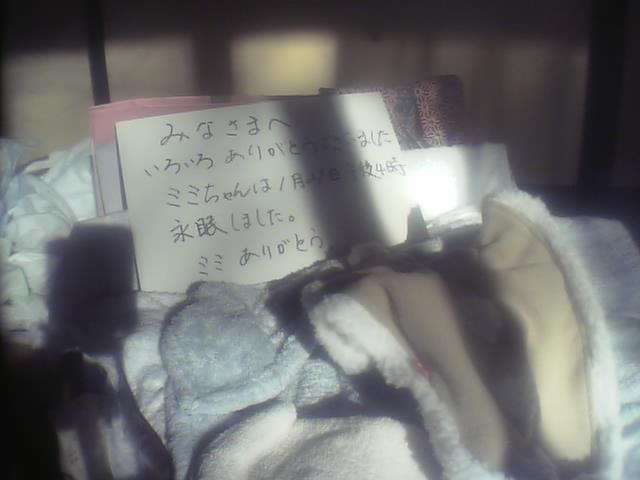 みなさまへ
いろいろ ありがとうございました
ミミちゃんは 1月 日 午後4時
永眠しました。
ミミ ありがとう。